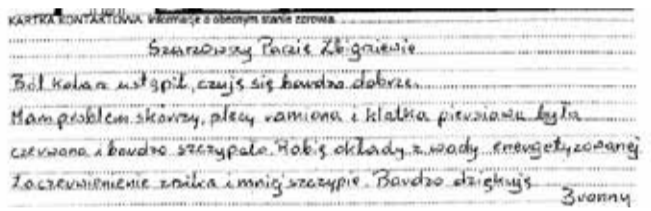 KARTKA KONTAKTOWA Informacje o obecnym stanie zdrowia.
Szanowny Panie Zbigniewie
Ból kolan ustąpił, czuję się bardzo dobrze.
Mam problem skórny, plecy ramiona i klatka piersiowa była
czerwona i bardzo szczypało. Robię okłady z wody energetyzowanej
Zaczerwienienie znika i mniej szczypie. Bardzo dziękuję